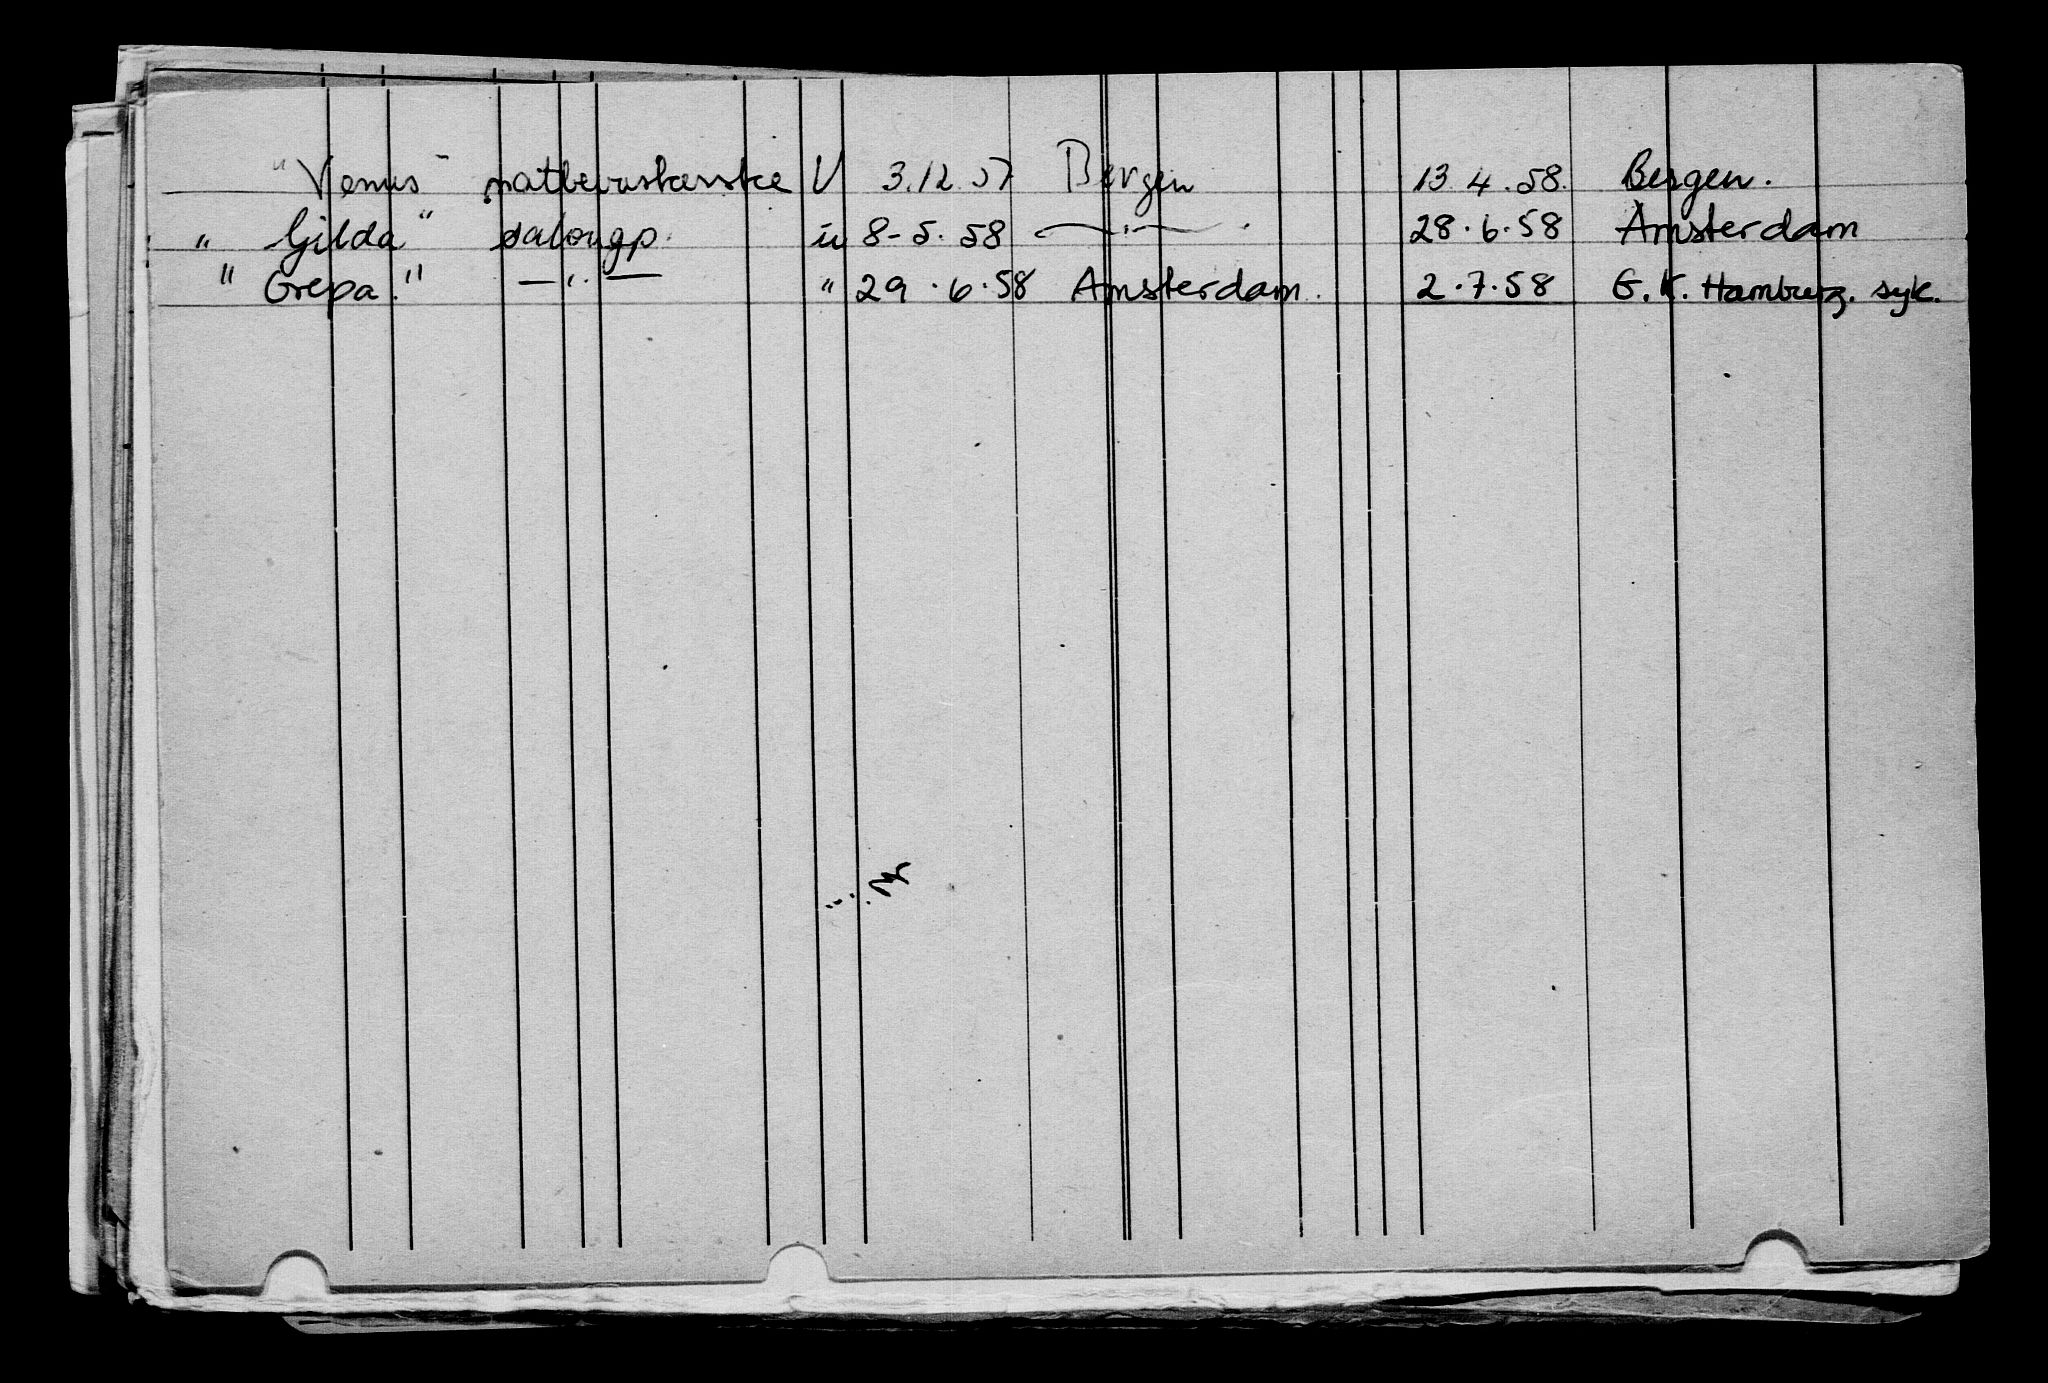 "Venus" natbevuskerske U 3.12.57 Bergen 13.4.58. Bergen.
" Gilda" salongp. u 8-5.58 —"— . 28.6.58 Amsterdam
" Grepa." —"— " 29.6.58 Amsterdam. 2.7.58 G.K. Hamburg. syk.